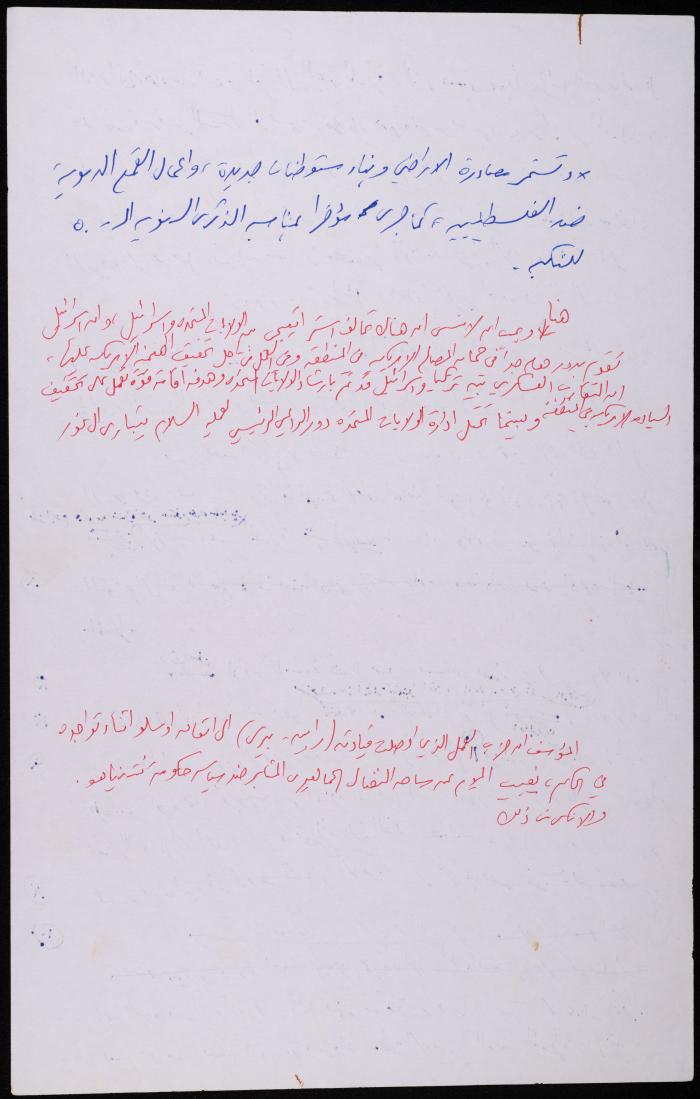 وتستمر مصادرة الاراضي وبناء مستوطنات جديدة، واعمال القمع الدموية
ضد الفلسطينيين، كما جرى مؤخرا بمناسبة الذكرى السنوية الـ ٥٠
للنكبة.
هنا
ويجب ان لا ننسى ان هناك تحالف استراتيجي بين الولايات المتحدة واسرائيل، وان اسرائيل
تقوم بدور هام جداً في حماية المصالح الامريكية في المنطقة وفي العمل من اجل تحقيق الهيمنة الامريكية عليها،
ان التعاون العسكري بين تركيا واسرائيل قد تم بارشاد الولايات المتحدة وهدفه اقامة قوة تعمل على تحقيق
السياسة الامريكية في المنطقة وبينما تحتل ادارة الولايات المتحدة دور الراعي الرئيسي لعملية السلام
المؤسف ان حزب العمل الذي اوصلت قيادته (رابين - بيرس) الى اتفاق اوسلو اثناء تواجده
في الحكم، يغيب اليوم عن ساحة النضال الجماهيري المثابر ضد سياسة حكومة نتنياهو.
ذلك